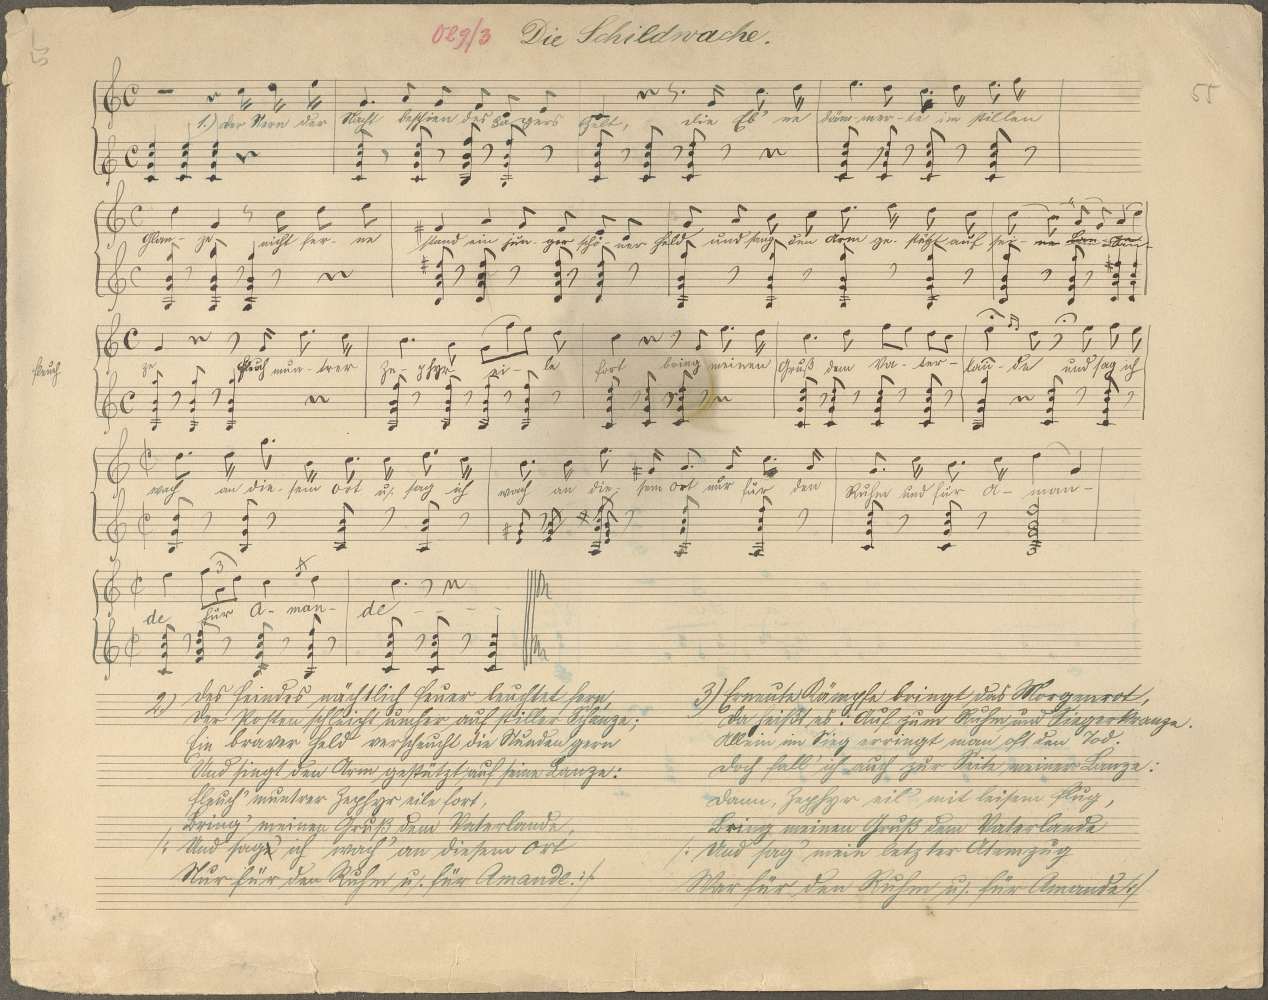 029/3 Die Schildwache.
55
1.) Der Stern der Nacht beschien des Lagers Zelt, die Eb' ne däm-mer-te im stillen
Glan-ze nicht fer-ne stand ein jun-ger schö-ner Held und sang den Arm ge-stützt auf sei-ne Lan-
fleuch
ze fleuch mun-trer Ze-phyr ei-le fort bring meinen Gruß dem Va-ter-lan-de und sag ich
wach an die-sem Ort u. sag ich wach an die-sem Ort nur für den Ruhm und für A-man-
de für A-man-de
2) Des Feindes nächtlich Feuer leuchtet fern,
Der Posten schleicht umher auf stiller Schanze;
Ein braver Held verscheucht die Stunden gern
Und singt den Arm gestützt auf seine Lanze:
Fleuch' muntrer Zephyr eile fort,
Bring' meinen Gruß dem Vaterlande,
/: Und sag ich wach' an diesem Ort
Nur für den Ruhm u. für Amande. :/
3) Erneute Kämpfe bringt das Morgenrot,
Da heißt es: Auf zum Ruhm und Siegerkranze.
Allein im Sieg erringt man oft den Tod,
Doch fall' ich auch zur Seite meiner Lanze:
Dann, Zephyr eil' mit leisem Flug,
Bring meinen Gruß dem Vaterlande
/: Und sag' mein letzter Atemzug
War für den Ruhm u. für Amande :/